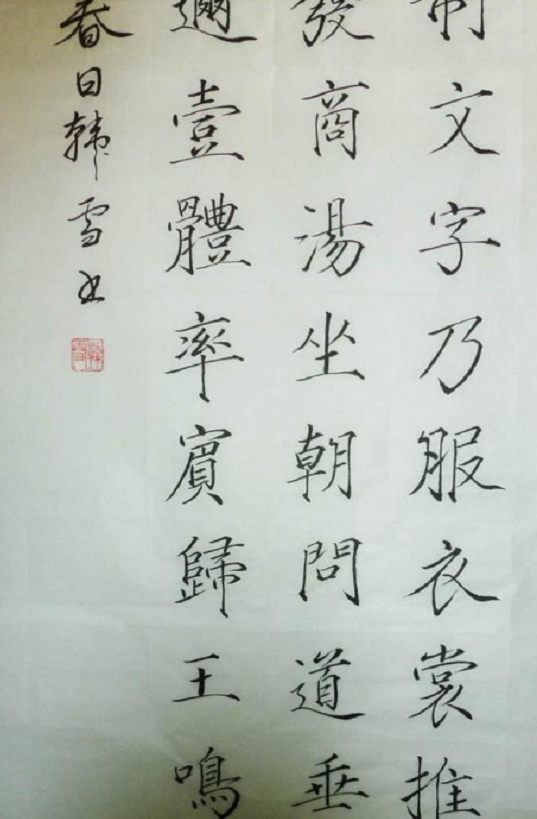 制文字乃服衣裳推
發商湯坐朝問道垂
邇壹體率賓歸王鳴
春日韩雪书